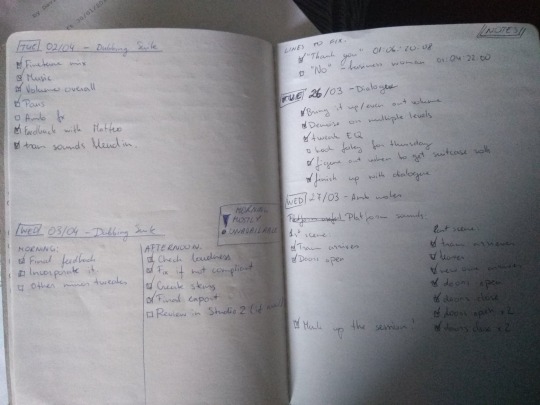 TUE 02/04 - Dubbing Suite
Finetune mix
Music
Volume overall
Pans
Amb fx
feedback with Matteo
train sounds blend in.
WED 03/04 - Dubbing Suite
MORNING
UNAVAILABLE
MORNING:
Final feedback
Incorporate it
Other minor tweaks
AFTERNOON:
Check loudness
Fix if not compliant
Create
Final export
Review in Studio 2
NOTES
LINES TO FIX:
"Thank you" 01:06:20:08
"No" - business woman 01:04:22:00
TUE 26/03 - Dialogue
Bring it up/even out volume
Denoise on multiple levels
tweak EQ
book foley for thursday
figure out when to get suitcase
finish up with dialogue
WED 27/03 - Amb
Platform sounds
1st scene:
Train arrives
Doors open
scene:
train
leaves
new train arrives
doors open
doors close
doors open x2
doors close x2
Mark up the session!